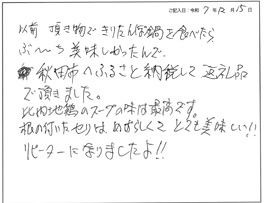 ご記入日:令和 7年12月15日
以前 頂き物できりたんぽ鍋を食べたら
ぶ〜〜ち美味しかったんで、
秋田市へふるさと納税して返礼品
で頂きました。
比内地鶏のスープの味は最高です。
根の付いたセリは、めずらしくて とても美味しい!!
リピーターになりましたよ!!